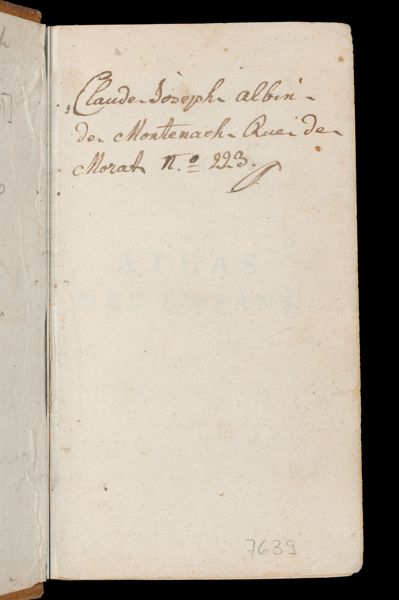 Claude Joseph albin
de Montenach Rue de
Morat N.o 223.
ATLAS
DES ENFANS
7639